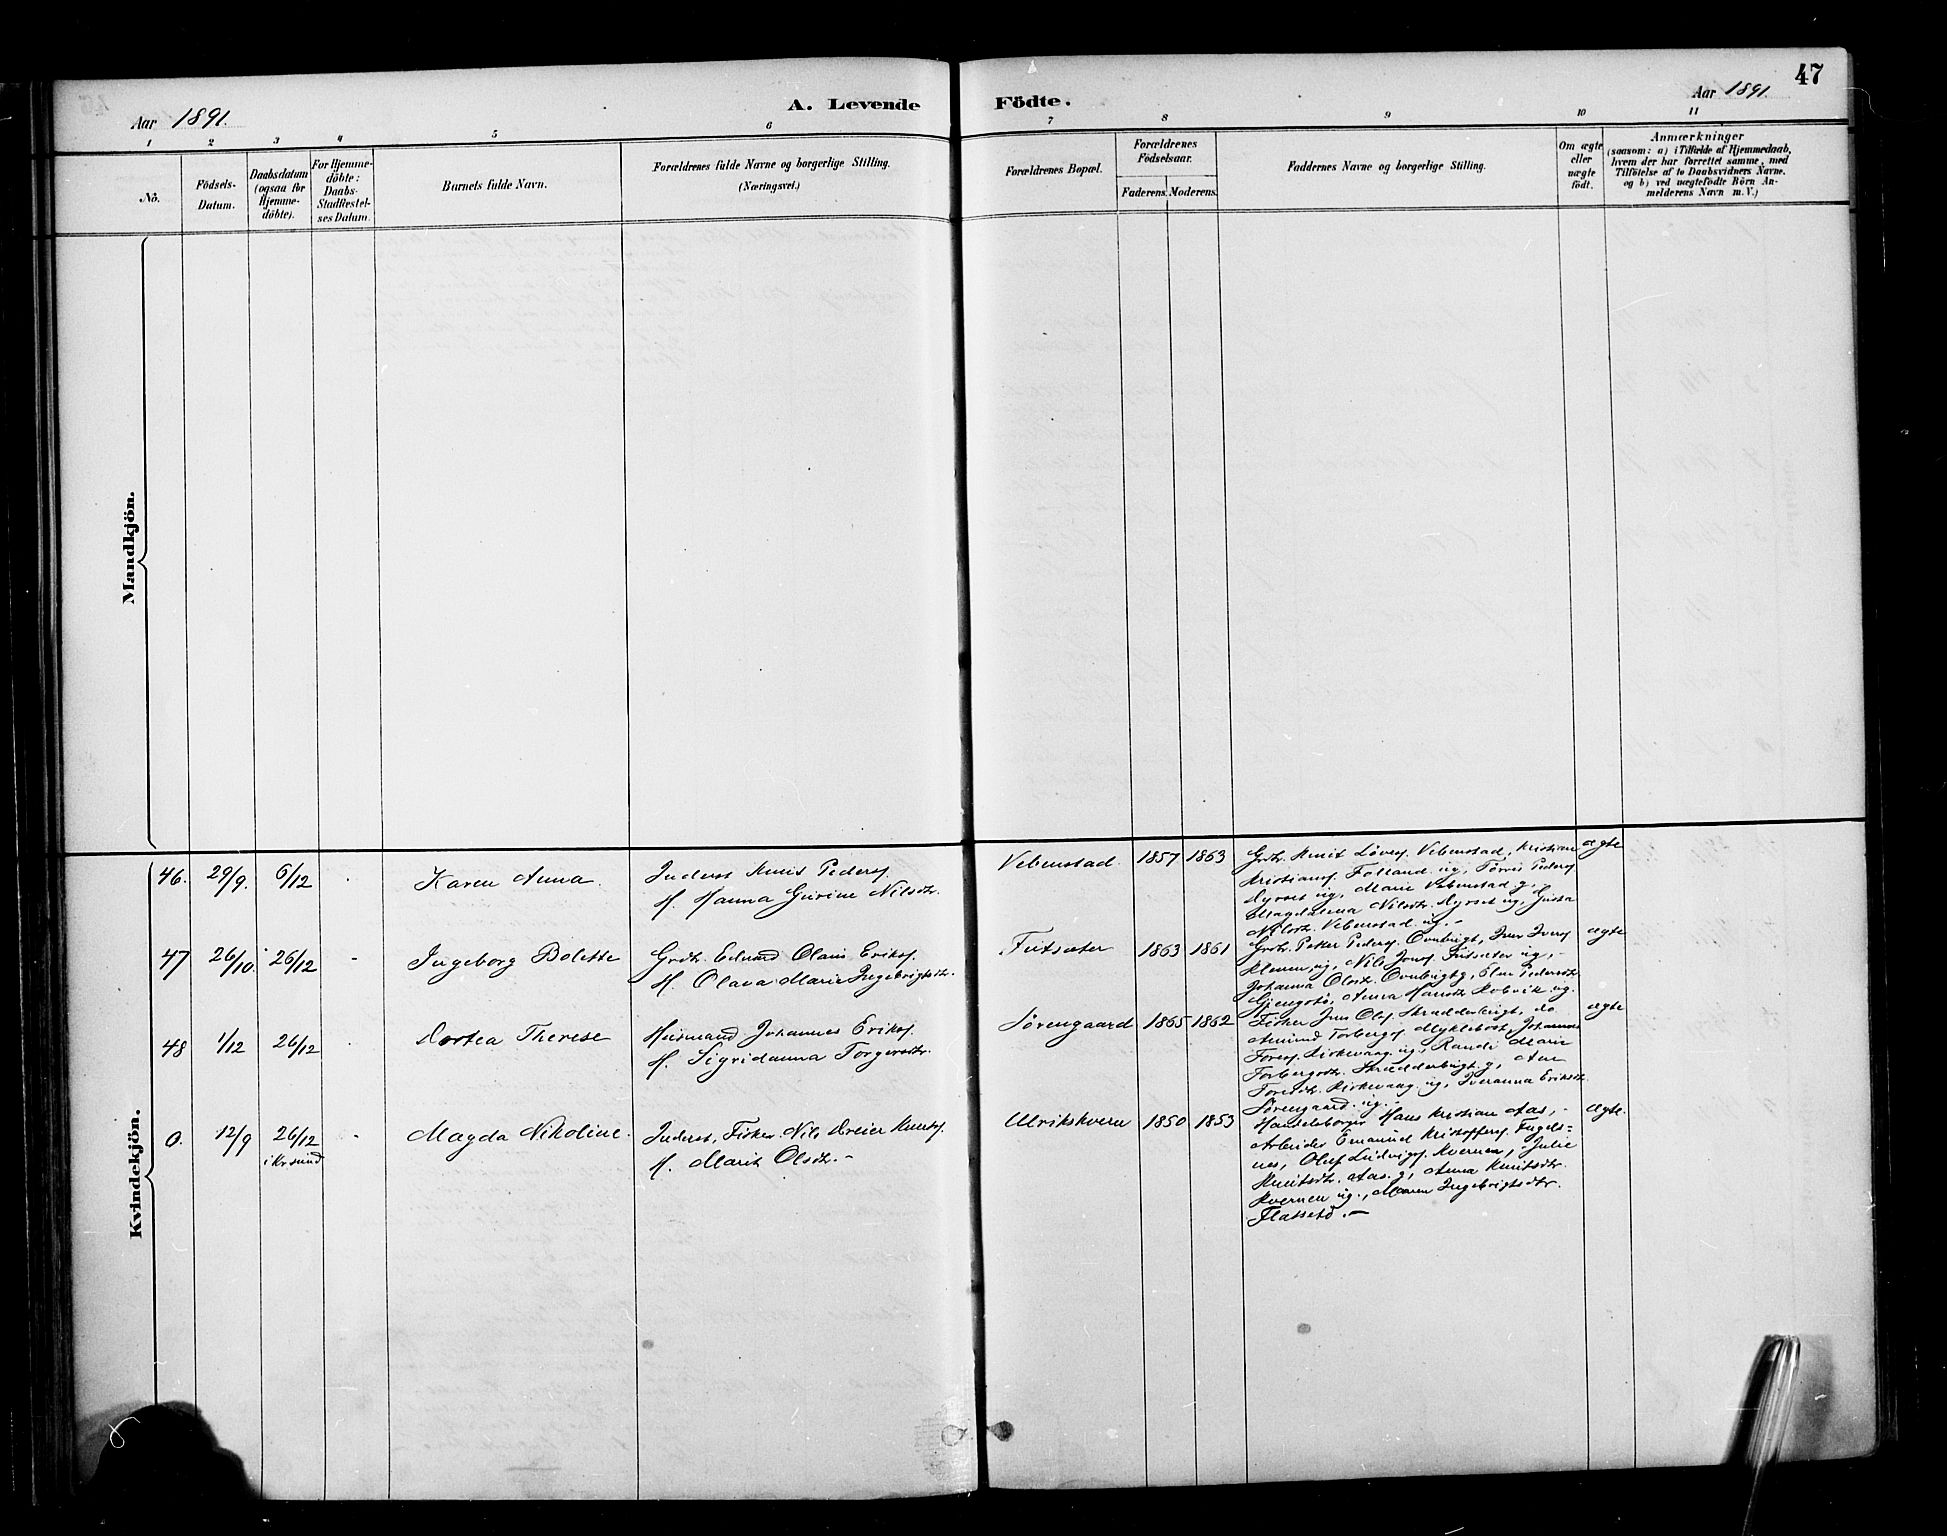 47
Aar 1891.
A. Levende Födte.
Aar 1891.
1 2 3 4 5 6 7 8 9 10 11
No.
Födsels-Datum.
Daabsdatum (ogsaa for Hjemme-döbte).
For Hjemme-döbte: Daabs-Stadfæstel-ses Datum.
Barnets fulde Navn.
Forældrenes fulde Navne og borgerlige Stilling.
(Næringsvei.)
Forældrenes Bopæl.
Forældrenes Födselsaar.
Faderens. Moderens.
Faddernes Navne og borgerlige Stilling.
Om ægte eller uægte födt.
Anmærkninger
(saasom: a) i Tilfælde af Hjemmedaab,
hvem der har forrettet samme, med
Tilföielse af to Daabsvidners Navne.
og b) ved uægtefödte Börn An-
melderens Navn m. V.)
Mandkjön.
Kvindekjön.
46. 29/9. 6/12 Karen Anna.
Inderst Knut Peders.
H. Hanna Gurine Nilsdtr.
Vebenstad. 1857 1863
Grdr. Knut Lövs. Vebenstad, Kristian
Kristians. Folland ug, Tørris Peders
Dyrset ug, Marie Vebenstad g,
Magdalena Nilsdtr. Dyrset ug, Gusta
Nilsdtr. Vebenstad ug.-
ægte
47 26/10. 26/12 - Ingeborg Bolette
Grdr. Edvard Olaus Eriks.
H. Olava Marie Ingebrigtsdtr.
Futsæter 1863 1861
Grdr. Petter Peders. Ovnbrigt, Iver Ivers
Klemen ug, Nils Jons. Futsæter ug,-
Johanna Olsdtr. Ovnbrigt g, Elen Pedersdtr
Gjengstö, Anna Hansdtr Kobvik ug.
ægte
48 1/12 26/12 Dortea Therese
Husmand Johannes Eriks.
H. Sigridanna Torgersdtr.
Sörengaard 1865 1862
Fisker Jens Ols. Skredderbrigt, do
Amund Torbergs Myklebost, Johannes
Tores. Kirkevaag. ug, Randi Marie
Torbergsdtr. Skredderbrigt. g, Ane
Toresdtr. Kirkevaag. ug, Iveranna Eriksdtr.
Sörengaard. ug.-
ægte
0. 12/9 26/12 - Magda Nikoline.
i Kr.sund
Inderst, Fisker Nils Dreier Knuts.
H. Marit Olsdtr.-
Ulrikskvern 1850 1853
Handelsborger Hans Kristian Aas,-
Arbeider Emanuel Kristoffers. Fugels=
nes, Oluf Ludvigs. Kvernen, Julie
Knutsdtr. Aas. g, Anna Knutsdtr.
Kvernen ug., Maren Ingebrigtsdtr.
Flatsetö.-
ægte.